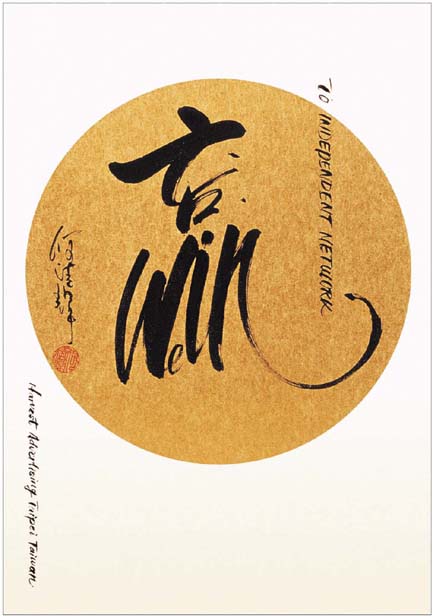 TO INDEPENDENT NETWORK
Win
Harvest Advertising Taipei Taiwan.